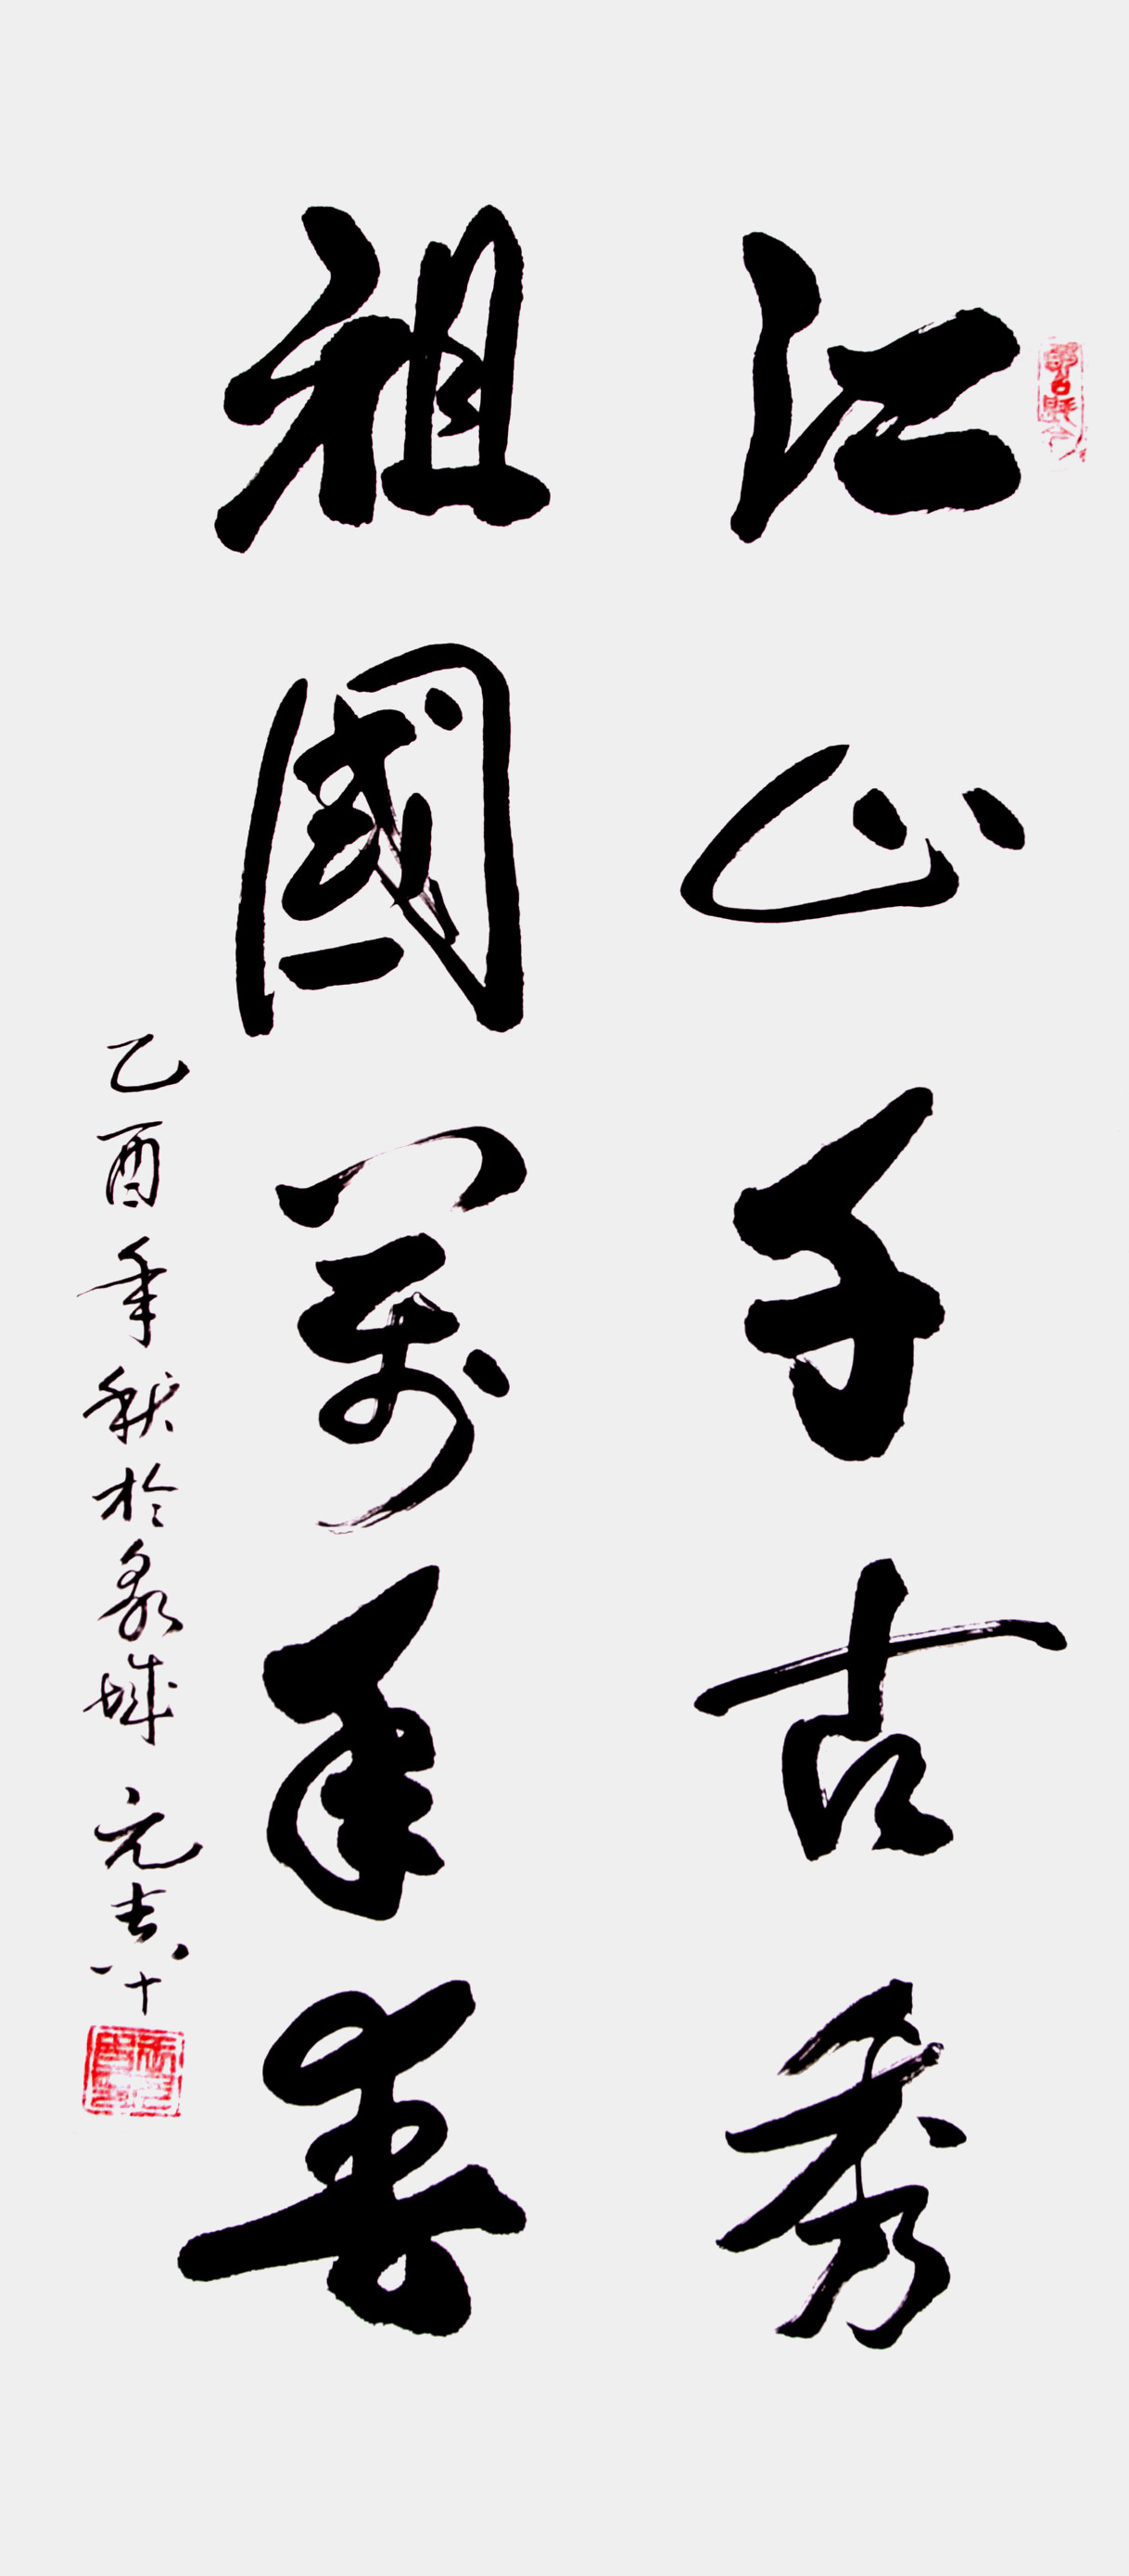 江山千古秀
祖國萬年春
乙酉年秋於泉城 元吉八十